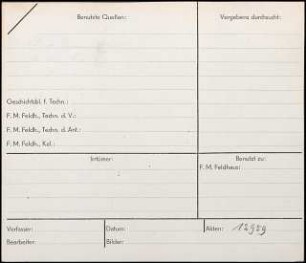 Benutzte Quellen:
Vergebens durchsucht:
Geschichtsbl. f. Techn.:
F. M. Feldh., Techn. d. V.:
F. M. Feldh., Techn. d. Ant.:
F. M. Feldh., Kal.:
Irrtümer:
Benutzt zu:
F. M. Feldhaus:
Verfasser:
Datum:
Akten: 12959
Bearbeiter:
Bilder: